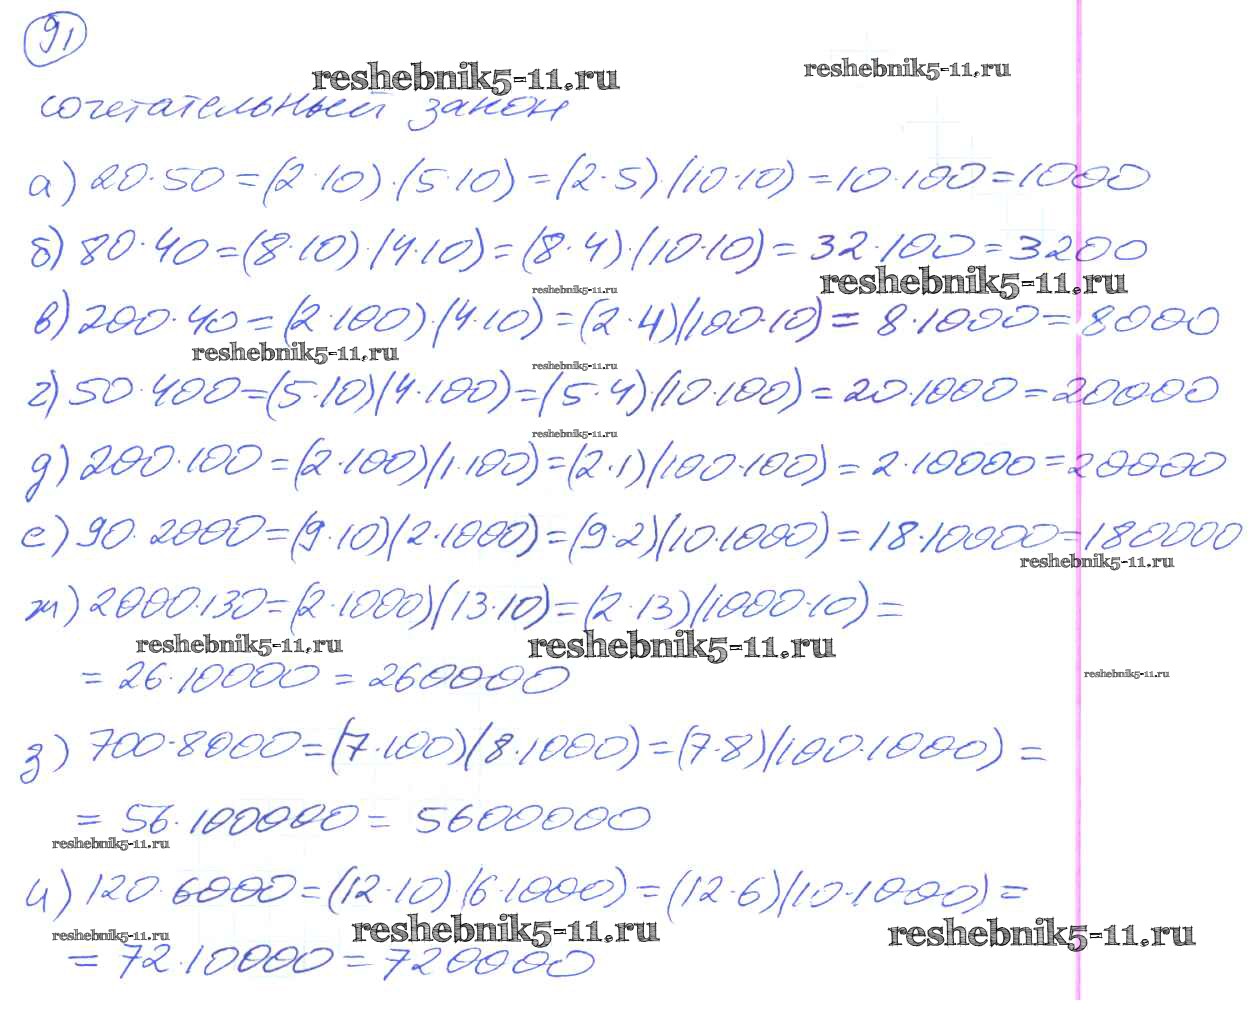 91
reshebnik5-11.ru
reshebnik5-11.ru
сочетательный закон
а) 20·50=(2·10)·(5·10)=(2·5)·(10·10)=10·100=1000
б) 80·40=(8·10)·(4·10)=(8·4)·(10·10)=32·100=3200
reshebnik5-11.ru
reshebnik5-11.ru
в) 200·40=(2·100)·(4·10)=(2·4)(100·10)=8·1000=8000
reshebnik5-11.ru
reshebnik5-11.ru
г) 50·400=(5·10)(4·100)=(5·4)·(10·100)=20·1000=20000
reshebnik5-11.ru
д) 200·100=(2·100)(1·100)=(2·1)(100·100)=2·10000=20000
е) 90·2000=(9·10)(2·1000)=(9·2)(10·1000)=18·10000=180000
reshebnik5-11.ru
ж) 2000·130=(2·1000)(13·10)=(2·13)(1000·10)=
reshebnik5-11.ru
reshebnik5-11.ru
=26·10000=260000
reshebnik5-11.ru
з) 700·8000=(7·100)(8·1000)=(7·8)(100·1000)=
=56·100000=5600000
reshebnik5-11.ru
и) 120·6000=(12·10)(6·1000)=(12·6)(10·1000)=
reshebnik5-11.ru
reshebnik5-11.ru
reshebnik5-11.ru
=72·10000=720000